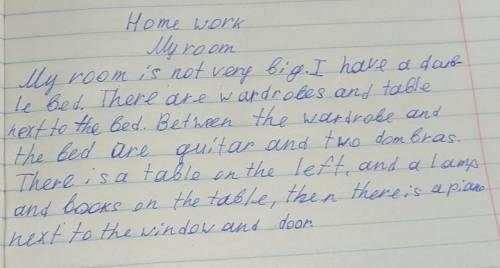 Home work
My room
My room is not very big. I have a doub-
le bed. There are wardrobes and table
next to the bed. Between the wardrobe and
the bed are guitar and two dombras.
There is a table on the left, and a lamp
and books on the table, then there is a piano
next to the window and door.